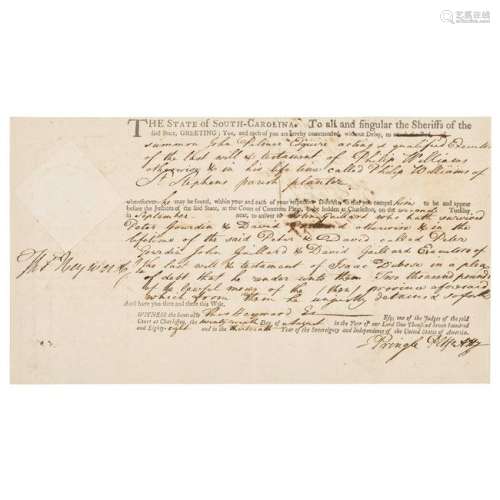 THE STATE of SOUTH-CAROLINA. To all and singular the Sheriffs of the
said State, GREETING: You, and each of you are hereby commanded, without Delay, to
summon John Esquire acting & qualified Executor
of the last will & testament of Philip Williams
otherwise & in his life time called Philip Williams of
St. Stephens parish planter
wheresoever he may be found, within your and each of your respective Districts, so that you compel him to be and appear
before the Justices of the said State, at the Court of Common Pleas, to be holden at Charleston, on the second Tuesday
in September next, to answer to John Gaillard who hath survived
Peter Gourdin & David otherwise & in the
lifetime of the said Peter & David called Peter
Gourdin John Gaillard & David Executors of
the last will & testament of Isaac Dubose in a plea
of debt that he render unto them Two thousand pounds
of the lawful money of the then province aforesaid
which from them he unjustly detains & so forth
And have you then and there this Writ.
Thos Heyward
WITNESS the honorable Thos Heyward Esq Esq; one of the Judges of the said
Court at Charleston, the twenty Day of August in the Year of our Lord One Thousand Seven Hundred
and Eighty-eight and in the thirteenth Year of the Sovereignty and Independence of the United States of America.
Pringle